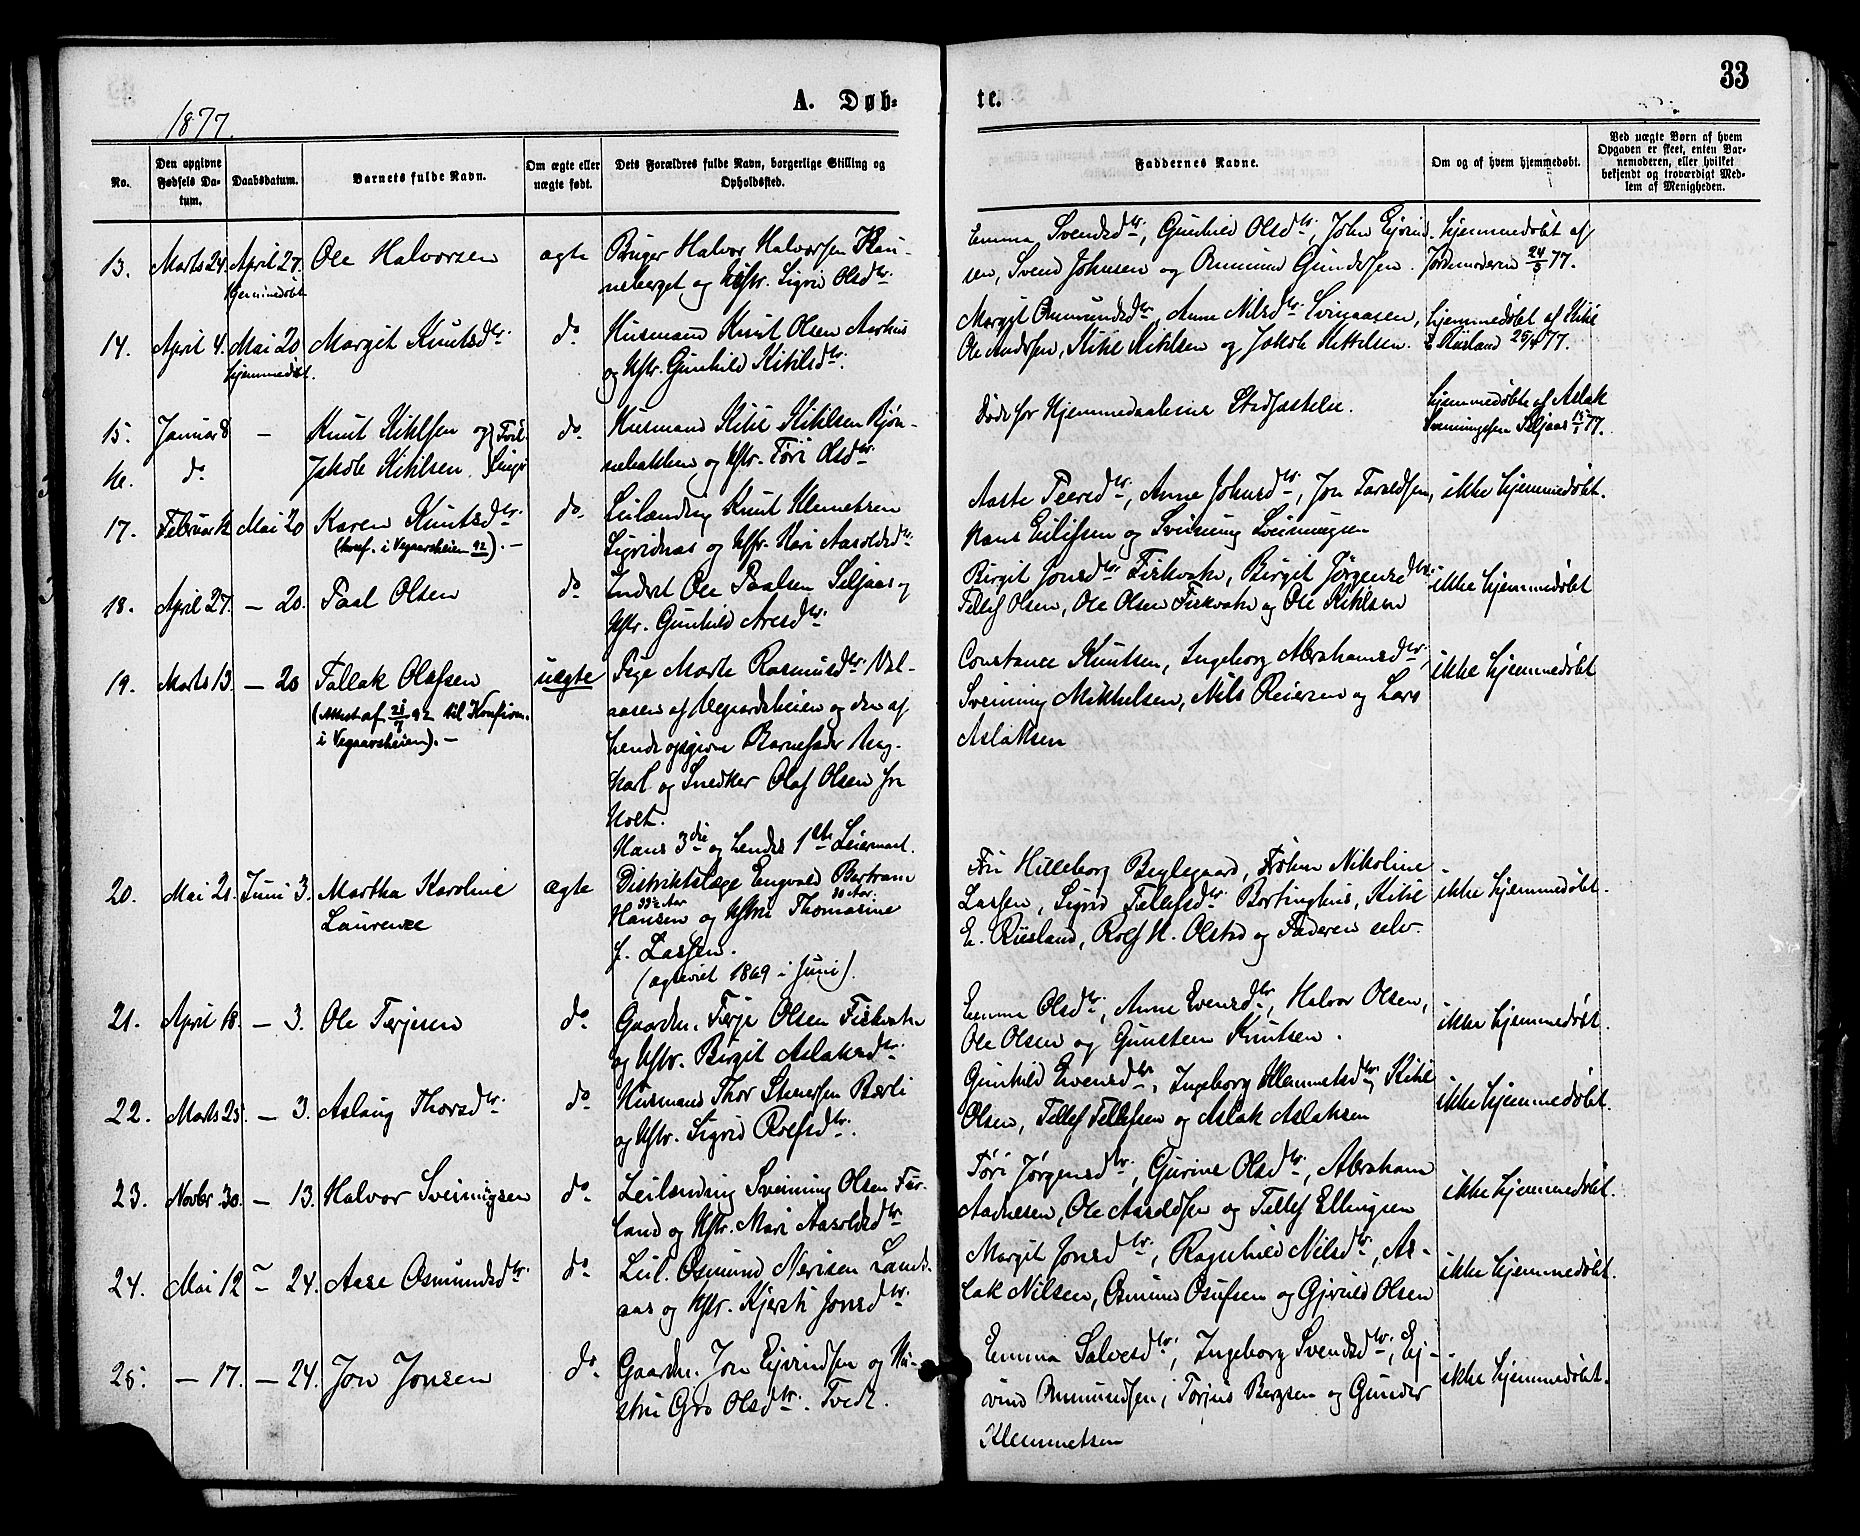 33
1877.
A. Døb-
te.
No.
Den opgivne Fødsels Da-tum.
Daabsdatum.
Barnets fulde Navn.
Om ægte eller uægte født.
Dets Forældres fulde Navn, borgerlige Stilling og Opholdssted.
Faddernes Navne.
Om og af hvem hjemmedøbt.
Ved uægte Børn af hvem Opgaven er skeet, enten Bar-nemoderen, eller hvilket bekjendt og troværdigt Med-lem af Menigheden.
13. Marts 24. April 27. Ole Halvorsen ægte
hjemmedøbt
Halvor Halvorsen
og Hstr. Sigrid Olsdtr.
Emma Svendsdtr., Gunhild Olsdtr., John Ejvind-
sen, Svend Johnsen og Osmund Gundersen.
hjemmedøbt af
Jordemoderen 24/3 77.
14. April 4. Mai 20 Margit Knutsdtr. do.
hjemmedøbt.
Husmand Knut Olsen Aarhus
og Hstr. Gunhild Kihlsdtr.
Margit Osmundsdtr., Anne Nilsdtr. Svingaasen,
Ole Andersen, Kihl Kihlsen og Jakob Kittelsen.
hjemmedøbt af Kihl
E. Risland 25/4 77.
15. Januar 8 – Knut Kihlsen og Tvil- do.
16. do. Jakob Kihlsen. linge
Husmand Kihl Kihlsen Bjøn-
nebakken og Hstr. Tøri Olsdtr.
Døde før Hjemmedaabens Stadfæstelse.
hjemmedøbte af Aslak
Sveinungsen Siljaas 15/1 77.
17. Februar 12 Mai 20 Karen Knutsdtr. do.
(konf. i Vegaarsheien 92). –
Leilænding Knut Klemetsen
Sigridnas og Hstr. Kari Aasoldsdtr.
Aaste Peersdtr., Anne Johnsdtr., Jon Taraldsen,
Hans Eilifsen og Sveinung Sveinungsen
ikke hjemmedøbt.
18. April 27. – 20. Paal Olsen do.
Inderst Ole Paalsen Siljaas og
Hstr. Gunhild Aresdtr.
Birgit Jonsdtr. Fiskvatn, Birgit Jørgensdtr.
Tellef Olsen, Ole Olsen Fiskvatn og Ole Kihlsen
ikke hjemmedøbt
19. Marts 13. – 20 Tallak Olafsen uægte
(Attest af 21/7 92 til Konfirm.
i Vegaarsheien). –
Pige Marte Rasmusdtr. Val-
aasen af Vegardsheien og den af
hende opgivne Barnefader Ung-
karl og Snedker Olaf Olsen fra
Holt.
Hans 3die og hendes 1ste Leiermaal.
Constance Knutsen, Ingeborg Abrahamsdtr.,
Sveinung Mikkelsen, Nils Reiersen og Lars
Aslaksen
ikke hjemmedøbt
20. Mai 21. Juni 3. Martha Karoline ægte
Laurenze
Distriktslæge Engvald Bertram
Hansen og Hstru Thomasine
J. Lassen.
(ægteviet 1869 i Juni).
Fru Hilleborg Beglegaard, Frøken Nikoline
Lassen, Sigrid Tellefsdtr. Bertinghus, Kihl
E. Risland, Rolf H. Olstad og Faderen selv.
ikke hjemmedøbt.
21. April 18. – 3. Ole Terjesen do.
Gaardm. Terje Olsen Fiskvatn
og Hstr. Birgit Aslaksdtr.
Emma Olsdtr., Anne Evensdtr., Halvor Olsen,
Ole Olsen og Gunstein Knutsen.
ikke hjemmedøbt.
22. Marts 25. – 3. Aslaug Thorsdtr. do.
Husmand Thor Steensen Bærli
og Hstr. Sigrid Rolfsdtr.
Gunhild Evensdtr., Ingeborg Klemmetsdtr., Kihl
Olsen, Tellef Tellefsen og Aslak Aslaksen
ikke hjemmedøbt.
23. Novbr 30. – 13. Halvor Sveinungsen do.
Leilænding Sveinung Olsen Fur-
land og Hstr. Mari Aasoldsdtr.
Tøri Jørgensdtr., Gurine Olsdtr., Abraham
Aadnesen, Ole Aasoldsen og Tellef Ellingsen
ikke hjemmedøbt.
24. Mai 12 – 24. Aase Osmundsdtr. do.
Leil. Osmund Nerisen Lands-
aas og Hstr. Kjersti Jonsdtr.
Margit Jonsdtr., Ragnhild Nilsdtr., As-
lak Nilsen, Osmund Osufsen og Gjeruld Olsen
ikke hjemmedøbt.
25. – 17. – 24. Jon Jonsen do.
Gaardm. Jon Ejvindsen og Hu-
stru Gro Olsdtr. Tvedt.
Emma Salvesdtr., Ingeborg Svendsdtr., Ej-
vind Osmundsen, Torjus Bergsen og Gunder
Klemmetsen
ikke hjemmedøbt.